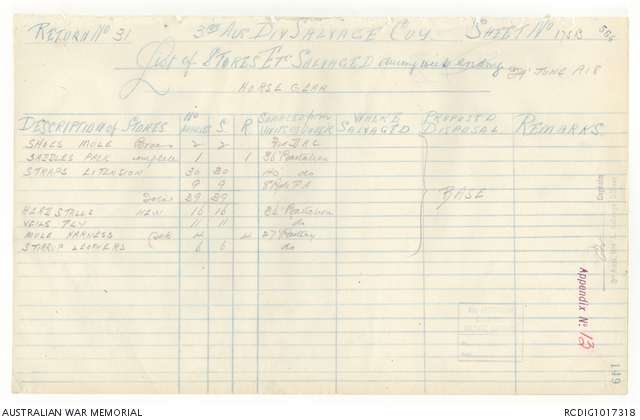 RETURN No 31 3rd AUS DIV SALVAGE COY SHEET No 175B
List of STORES ETC SALVAGED during week ending JUNE 1918
HORSE GEAR
DESCRIPTION of STORES No S R SALVAGED from WHERE SALVAGED PROPOSED DISPOSAL REMARKS
SHOES MULE 2 2
SADDLES PACK complete 1 1 36 Battalion
STRAPS EXTENSION 30 30 do do
9 9
39 39
BASE
HEAD STALLS NEW 16 16 36 Battalion
VEILS FLY 11 11 do
MULE HARNESS 4 4 27 Battery
STIRRUP LEATHERS 6 6 do
Captain
Appendix No. 13
149
AUSTRALIAN WAR MEMORIAL RCDIG1017318